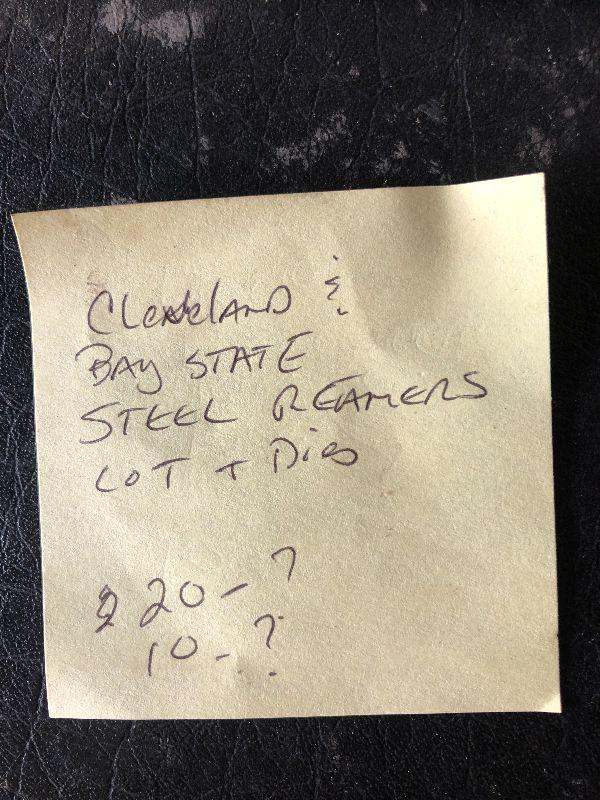 Cleveland &
BAY STATE
STEEL REAMERS
LOT + Dies
$ 20 - ?
10 - ?